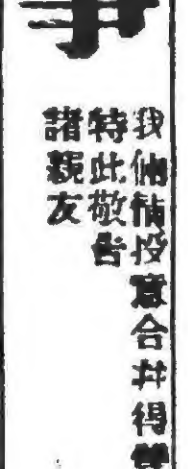 事
我倆情投意合並得雙
特此敬告
諸親友